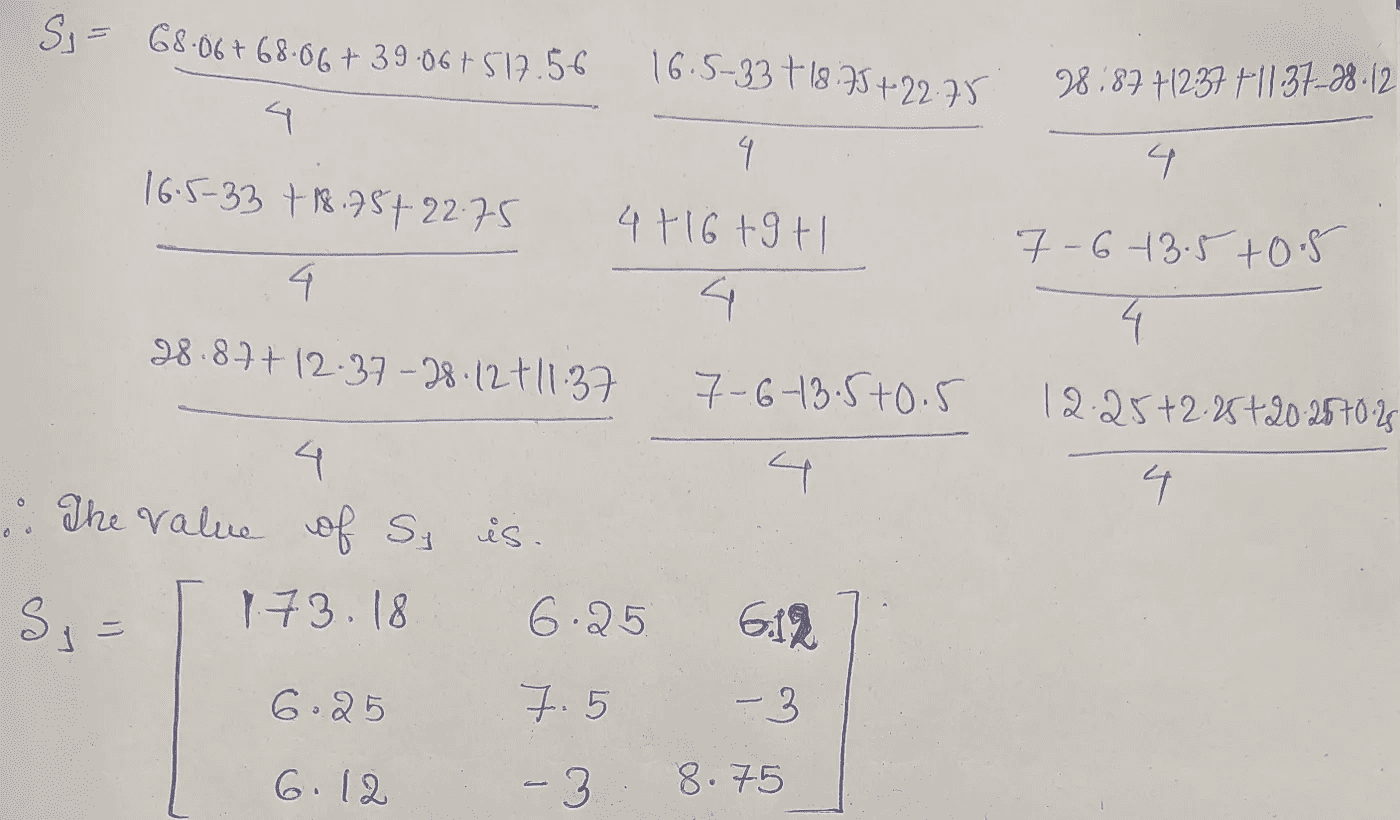 S₁ = 68.06+68.06+39.06+517.56 16.5-33+18.75+22.75 28.87+12.37+11.37-28.12
4 4 4
16.5-33+18.75+22.75 4+16+9+1 7-6-13.5+0.5
4 4 4
28.87+12.37-28.12+11.37 7-6-13.5+0.5 12.25+2.25+20.25+0.25
4 4 4
∴ The value of S₁ is.
S₁ = [ 173.18 6.25 6.12 ]
6.25 7.5 -3
6.12 -3 8.75